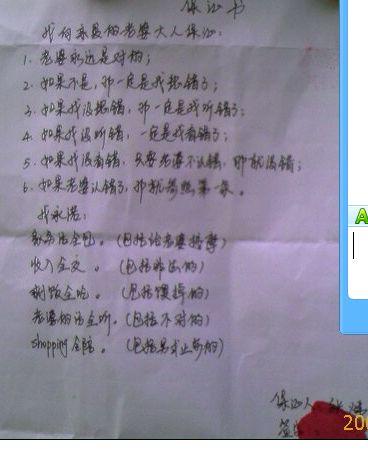 保证书
我向亲爱的老婆大人保证:
1. 老婆永远是对的;
2. 如果不是,那一定是我想错了;
3. 如果我没想错,那一定是我听错了;
4. 如果我没听错,一定是我看错了;
5. 如果我没看错,只要老婆不认错,那就没错;
6. 如果老婆认错了,那就参照第一条。
我承诺:
家务活全包。(包括给老婆按摩)
收入全交。(包括非法的)
剩饭全吃。(包括馊掉的)
老婆的话全听。(包括不对的)
shopping全陪。(包括男士止步的)
保证人
A
200